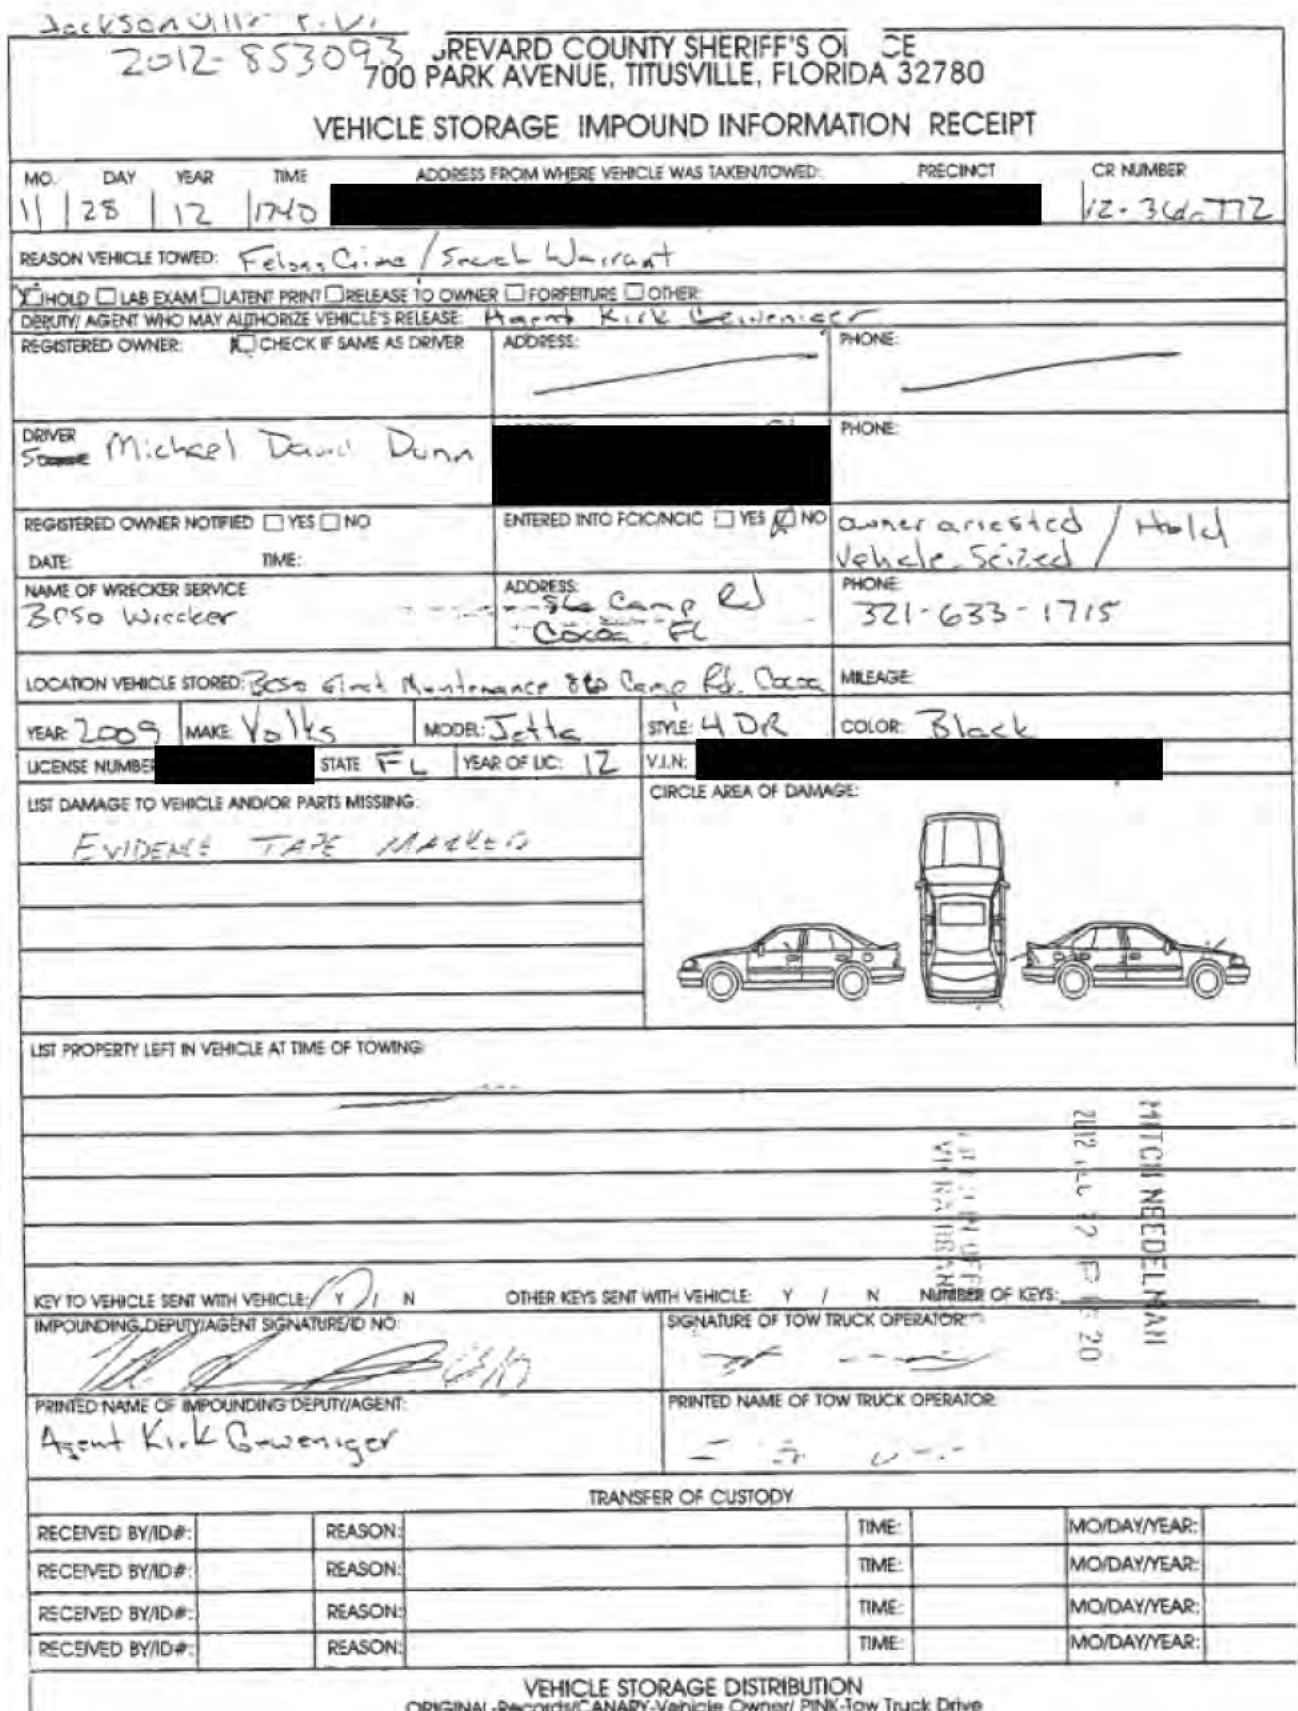 Jacksonville P.D.
2012-853093
BREVARD COUNTY SHERIFF'S OFFICE
700 PARK AVENUE, TITUSVILLE, FLORIDA 32780
VEHICLE STORAGE IMPOUND INFORMATION RECEIPT
MO. DAY YEAR TIME ADDRESS FROM WHERE VEHICLE WAS TAKEN/TOWED: PRECINCT CR NUMBER
11 28 12 1740
REASON VEHICLE TOWED: Felony Crime / Search Warrant
HOLD LAB EXAM LATENT PRINT RELEASE TO OWNER FORFEITURE OTHER:
DEPUTY/ AGENT WHO MAY AUTHORIZE VEHICLE'S RELEASE: Agent Kirk Geweniger
REGISTERED OWNER: CHECK IF SAME AS DRIVER ADDRESS: PHONE:
DRIVER PHONE:
Michael David Dunn
REGISTERED OWNER NOTIFIED YES NO ENTERED INTO FCIC/NCIC YES NO owner arrested / Hold
DATE: TIME: Vehicle Seized
NAME OF WRECKER SERVICE ADDRESS: PHONE:
BCSO Wrecker 860 Camp Rd 321-633-1715
Cocoa FL
LOCATION VEHICLE STORED: BCSO Fleet Maintenance 860 Camp Rd. Cocoa MILEAGE:
YEAR: 2009 MAKE: Volks MODEL: Jetta STYLE: 4 DR COLOR: Black
LICENSE NUMBER STATE FL YEAR OF LIC: 12 V.I.N:
LIST DAMAGE TO VEHICLE AND/OR PARTS MISSING: CIRCLE AREA OF DAMAGE:
EVIDENCE TAPE MARKED
LIST PROPERTY LEFT IN VEHICLE AT TIME OF TOWING:
MITCH NEEDELMAN
KEY TO VEHICLE SENT WITH VEHICLE: Y / N OTHER KEYS SENT WITH VEHICLE: Y / N NUMBER OF KEYS:
IMPOUNDING DEPUTY/AGENT SIGNATURE/ID NO: SIGNATURE OF TOW TRUCK OPERATOR:
PRINTED NAME OF IMPOUNDING DEPUTY/AGENT: PRINTED NAME OF TOW TRUCK OPERATOR:
Agent Kirk Geweniger
TRANSFER OF CUSTODY
RECEIVED BY/ID#: REASON: TIME: MO/DAY/YEAR:
RECEIVED BY/ID#: REASON: TIME: MO/DAY/YEAR:
RECEIVED BY/ID#: REASON: TIME: MO/DAY/YEAR:
RECEIVED BY/ID#: REASON: TIME: MO/DAY/YEAR:
VEHICLE STORAGE DISTRIBUTION
ORIGINAL-Records/CANARY-Vehicle Owner/ PINK-Tow Truck Drive